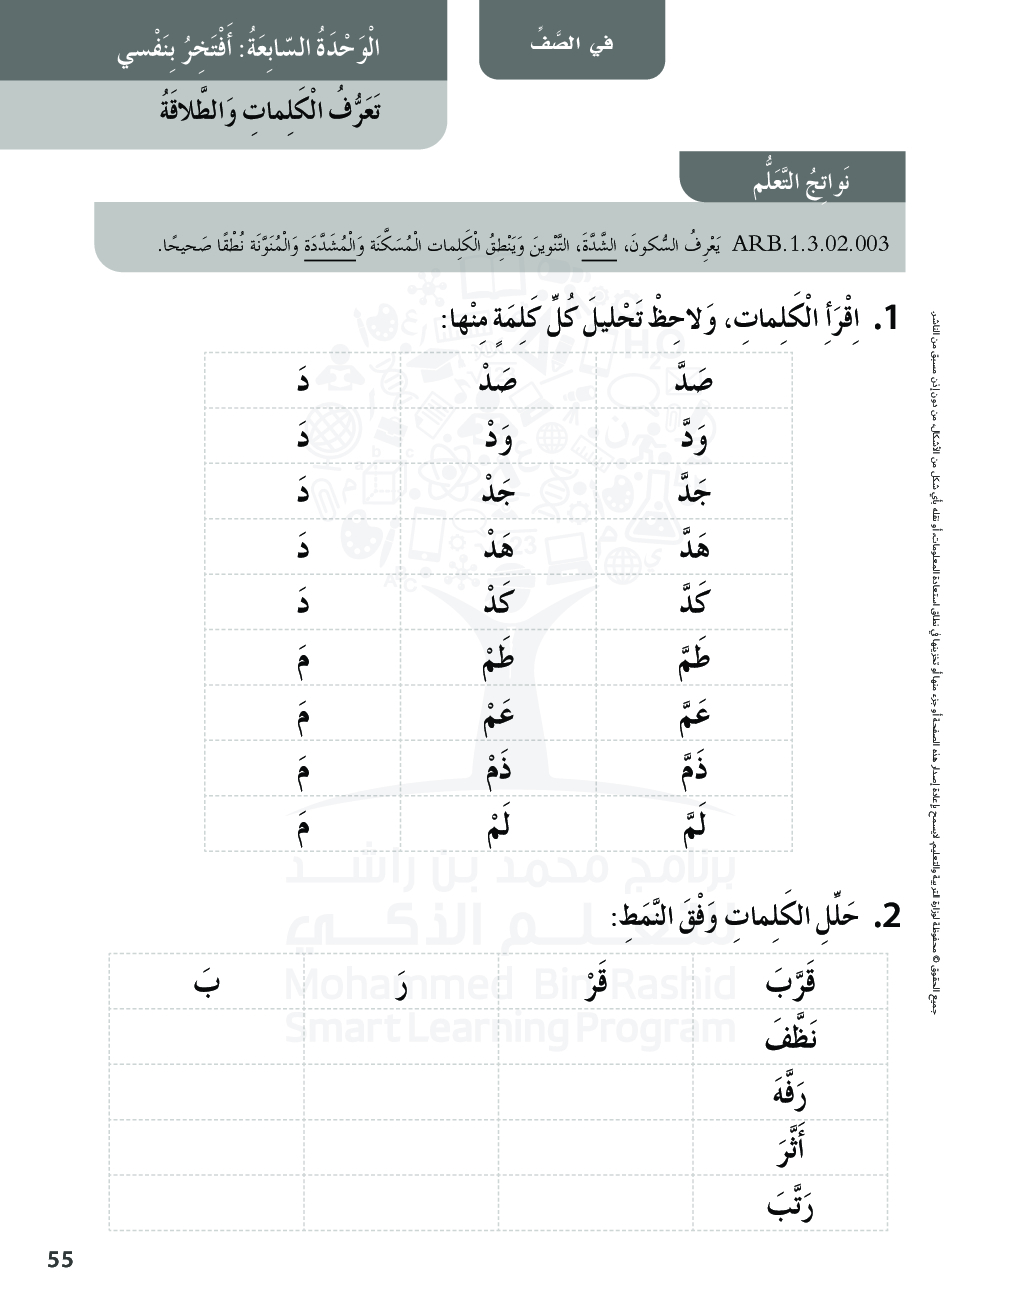 في الصَّفِّ
الْوَحْدَةُ السّابِعَةُ: أَفْتَخِرُ بِنَفْسي
تَعَرُّفُ الْكَلِماتِ وَالطَّلاقَةُ
نَواتِجُ التَّعَلُّم
ARB.1.3.02.003 يَعْرِفُ السُّكونَ، الشَّدَّةَ، التَّنْوينَ وَيَنْطِقُ الْكَلِمات الْمُسَكَّنَة وَالْمُشَدَّدَة وَالْمُنَوَّنَة نُطْقًا صَحيحًا.
1. اِقْرَأِ الْكَلِماتِ، وَلاحِظْ تَحْليلَ كُلِّ كَلِمَةٍ مِنْها:
صَدَّ صَدْ دَ
وَدَّ وَدْ دَ
جَدَّ جَدْ دَ
هَدَّ هَدْ دَ
كَدَّ كَدْ دَ
طَمَّ طَمْ مَ
عَمَّ عَمْ مَ
ذَمَّ ذَمْ مَ
لَمَّ لَمْ مَ
برنامج محمد بن راشد
للتعلم الذكي
Mohammed Bin Rashid
Smart Learning Program
2. حَلِّلِ الكَلِماتِ وَفْقَ النَّمَطِ:
قَرَّبَ قَرْ رَ بَ
نَظَّفَ
رَفَّهَ
أَثَّرَ
رَتَّبَ
جميع الحقوق © محفوظة لوزارة التربية والتعليم. لايسمح بإعادة إصدار هذه الصفحة أو جزء منها أو تخزينها في نطاق استعادة المعلومات، أو نقله بأي شكل من الأشكال، من دون إذن مسبق من الناشر.
55